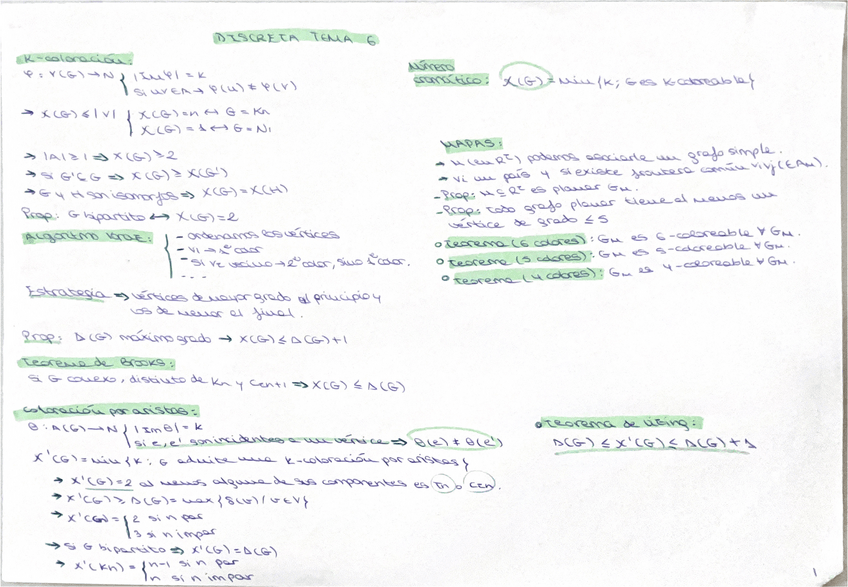 DISCRETA TEMA 6
K-coloración:
φ: V(G) → N { |Im φ| = k
si uv ∈ A → φ(u) ≠ φ(v)
→ X(G) ≤ |V| { X(G) = n ↔ G = Kn
X(G) = 1 ↔ G = N1
→ |A| ≥ 1 ⇒ X(G) ≥ 2
→ Si G' ⊆ G ⇒ X(G) ≥ X(G')
→ G y H son isomorfos ⇒ X(G) = X(H)
Prop: G bipartito ↔ X(G) = 2
Algoritmo voraz: { - Ordenamos los vértices
- V1 → 1º color
- Si V2 vecino → 2º color, sino 1º color.
- ...
Estrategia ⇒ vértices de mayor grado al principio y
los de menor al final.
Prop: Δ(G) máximo grado → X(G) ≤ Δ(G)+1
Teorema de Brooks:
Si G conexo, distinto de Kn y C2n+1 ⇒ X(G) ≤ Δ(G)
Coloración por aristas:
θ: A(G) → N { |Im θ| = k
si e, e' son incidentes a un vértice ⇒ θ(e) ≠ θ(e')
X'(G) = min {k; G admite una k-coloración por aristas}
→ X'(G) = 2 al menos alguna de sus componentes es o C2n.
→ X'(G) ≥ Δ(G) = max {δ(v) / v ∈ V}
→ X'(Cn) = { 2 si n par
3 si n impar
→ Si G bipartito ⇒ X'(G) = Δ(G)
→ X'(Kn) = { n-1 si n par
n si n impar
Número
cromático: X(G) = min {k; G es k-coloreable}
MAPAS:
→ M (en R²) podemos asociarle un grafo simple.
→ Vi un país y si existe frontera común ViVj (∈ AM).
- Prop: M ⊆ R² es planar GM.
- Prop: Todo grafo planar tiene al menos un
vértice de grado ≤ 5
o Teorema (6 colores): GM es 6-coloreable ∀ GM.
o Teorema (5 colores): GM es 5-coloreable ∀ GM.
o Teorema (4 colores): GM es 4-coloreable ∀ GM.
o Teorema de Vizing:
Δ(G) ≤ X'(G) ≤ Δ(G) + 1
1